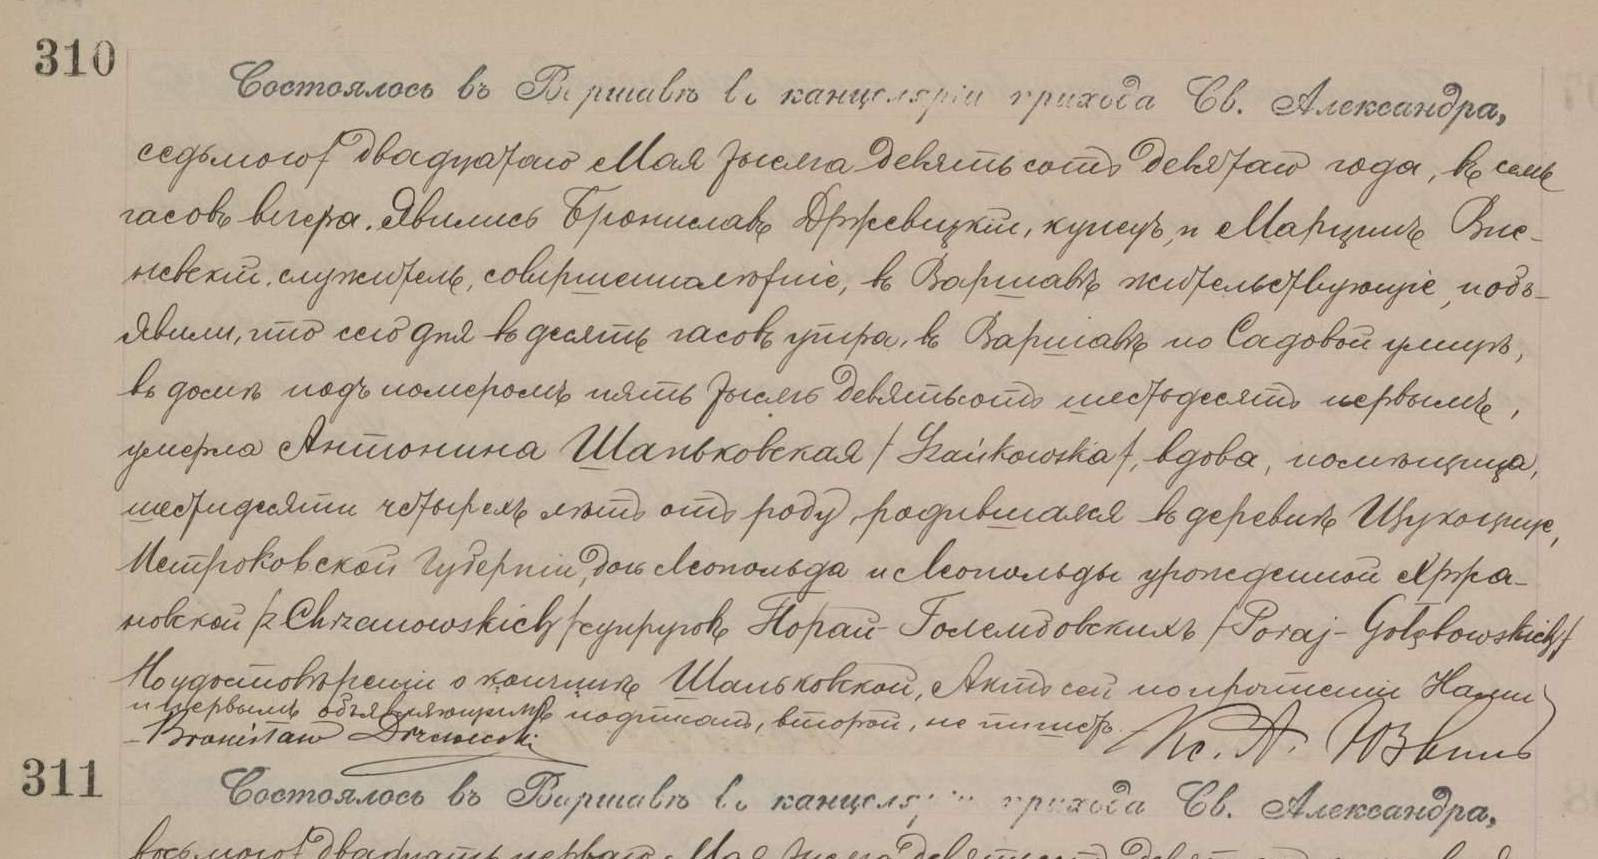 310
Состоялось въ Варшавѣ въ канцеляріи прихода Св. Александра,
седьмого/двадцатаго Мая тысяча девятьсотъ девятаго года, въ семь
часовъ вечера. Явились Брониславъ Држевицкій, купецъ, и Марцинъ Вис-
невскій, служитель, совершеннолѣтніе, въ Варшавѣ жительствующіе, и объ-
явили, что сего дня въ десять часовъ утра, въ Варшавѣ по Садовой улицѣ,
въ домѣ подъ номеромъ пять тысячъ девятьсотъ шестьдесятъ первымъ,
умерла Антонина Шаньковская /Szańkowska/, вдова, помѣщица,
шестидесяти четырехъ лѣтъ отъ роду, родившаяся въ деревнѣ
Петроковской Губерніи, дочь Леопольда и Леопольды урожденной Хржа-
новской /z Chrzanowskich/ супруговъ Порай-Голембовскихъ /Poraj-Gołębowskich/
По удостовѣреніи о кончинѣ Шаньковской, Актъ сей по прочтеніи Нами
и первымъ объявляющимъ подписанъ, второй, не пишетъ.
Bronisław Drzewiecki
Кс. А.
311
Состоялось въ Варшавѣ въ канцеляріи прихода Св. Александра,
восьмого/двадцать перваго Мая тысяча девятьсотъ